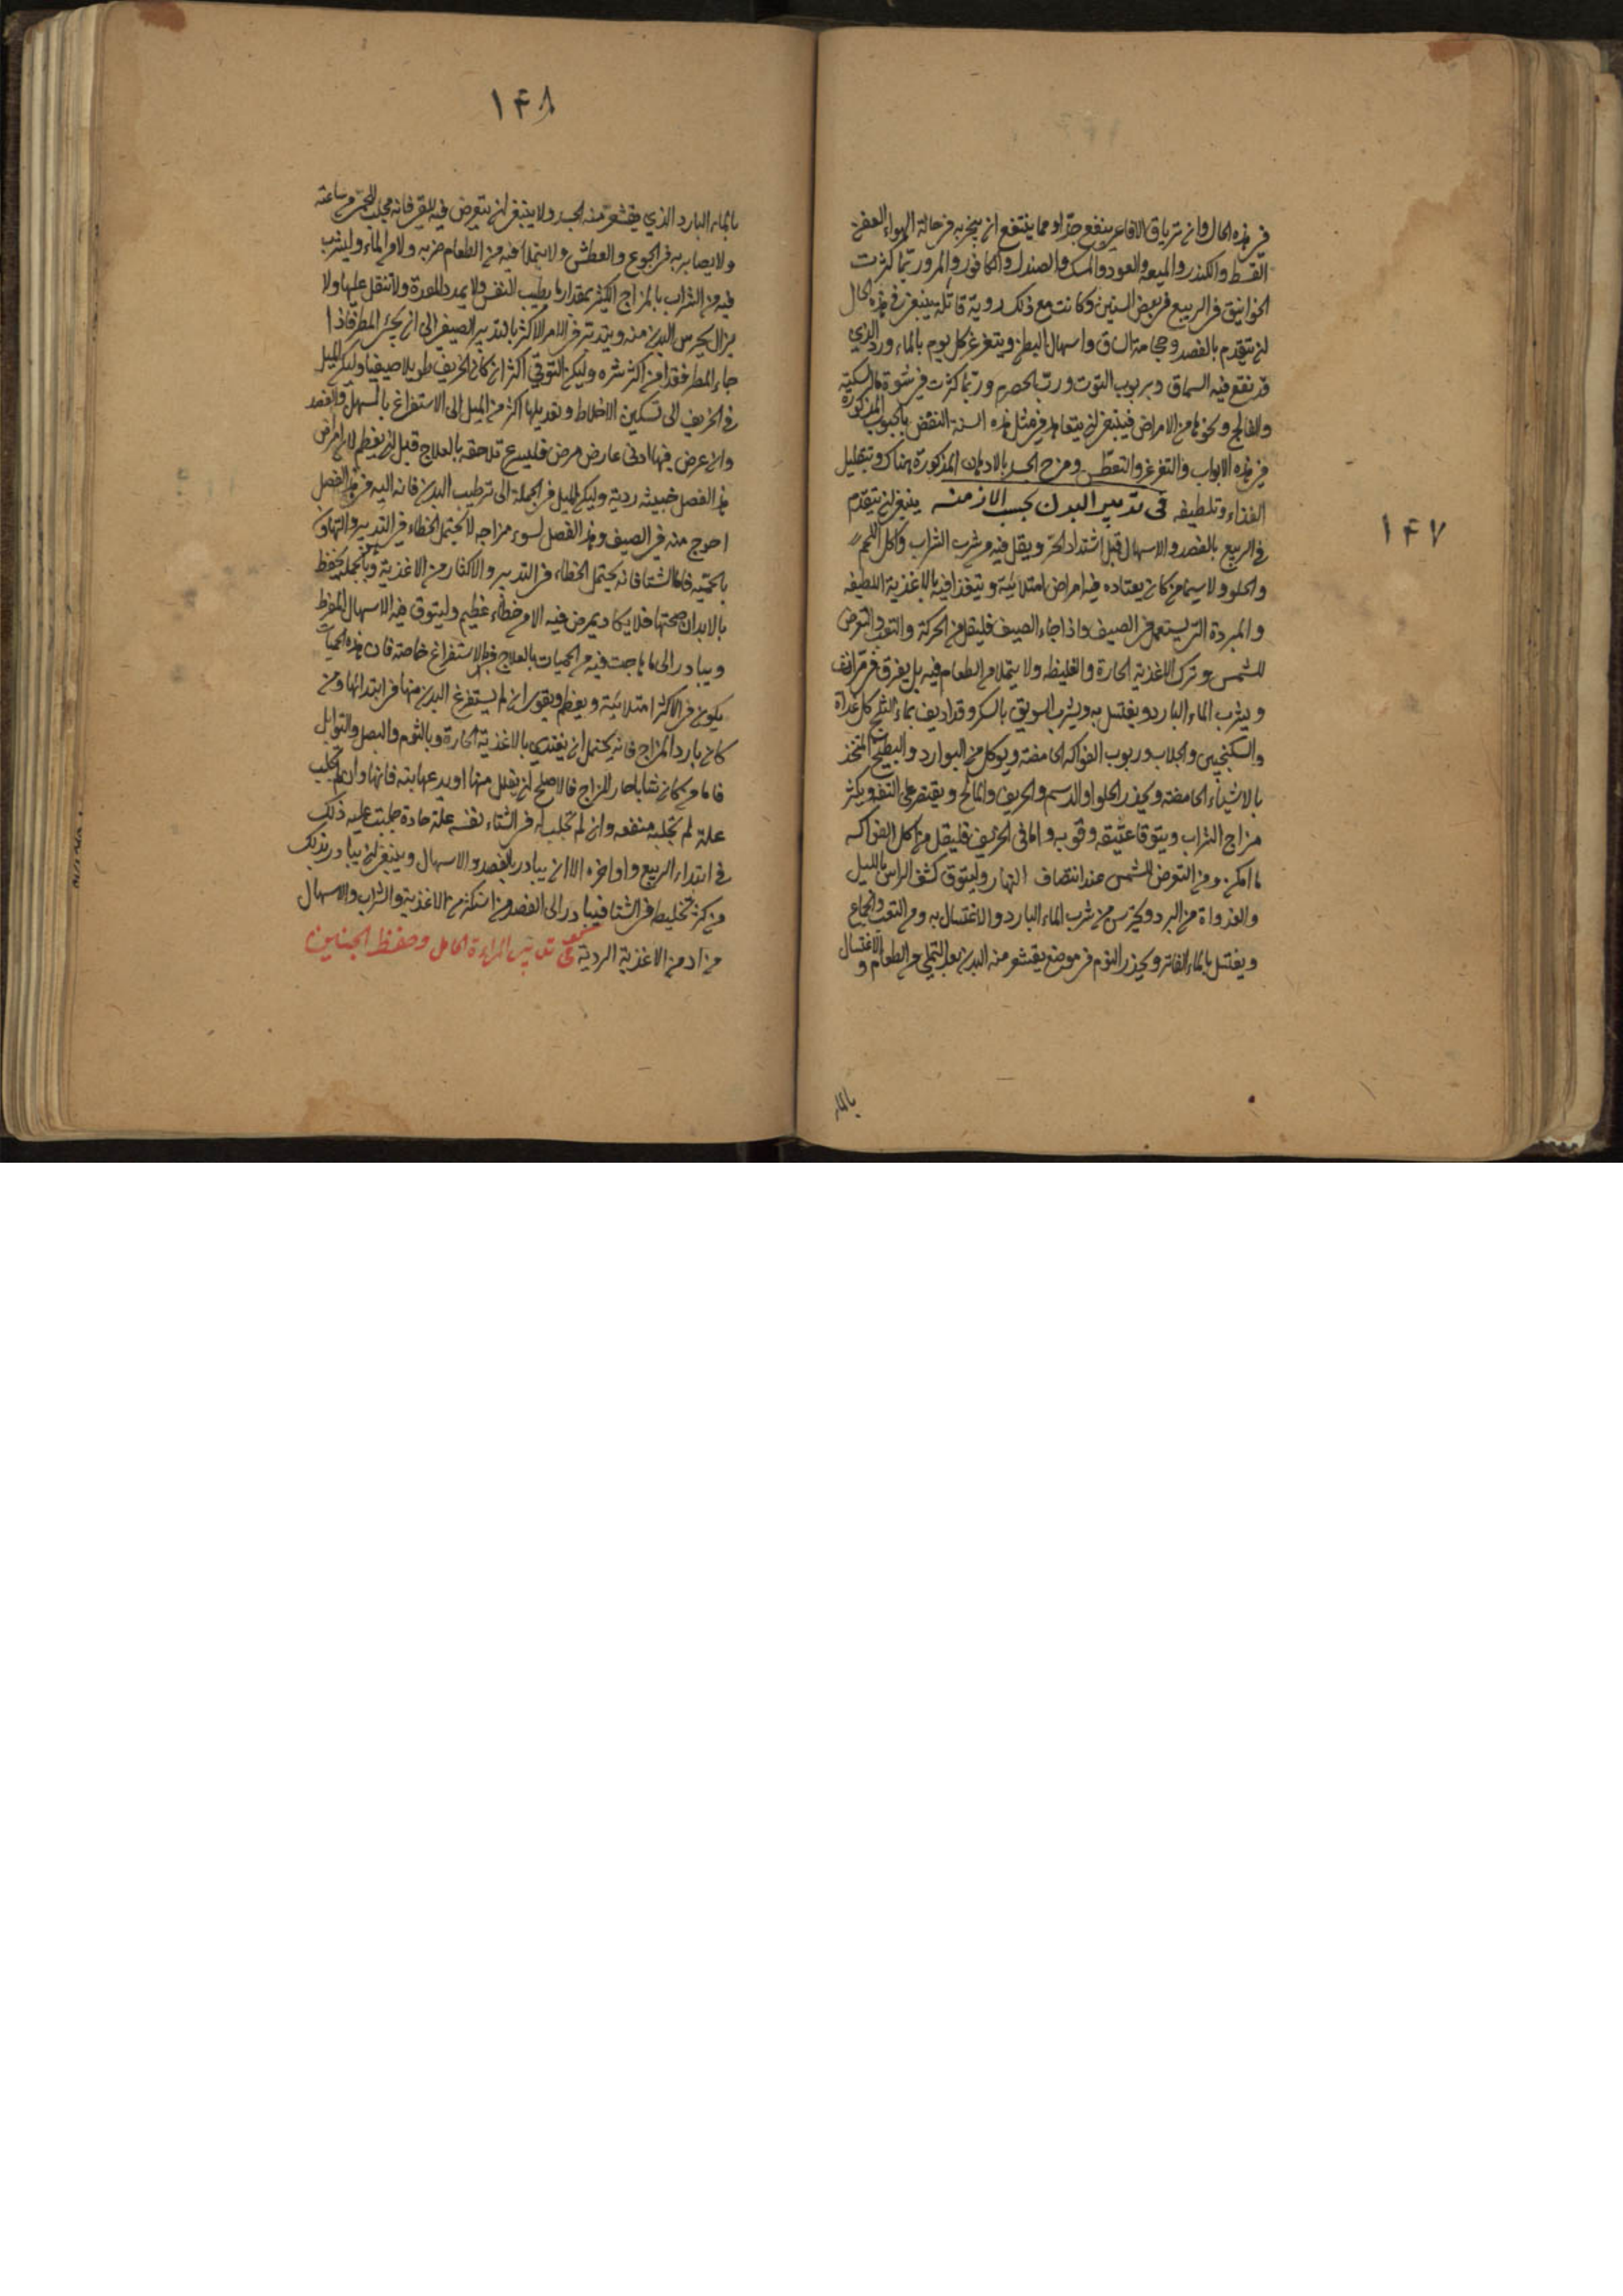 ۱۴۷
في هذه الحال وان ترياق الافاعي ينفع جدا ومما ينتفع ان يبخر به في حالة الهواء العفن
القسط والكندر والميعه والعود والمسك والصندل والكافور والمر وربما كثرت
الخوانيق في الربيع في بعض السنين وكانت مع ذلك رديّة قاتلة فينبغي في هذه الحال
ان يتقدم بالفصد وحجامة الساق واسهال البطن ويتغرغر كل يوم بالماء ورد الذي
قد نقع فيه السماق وبربوب التوت وربّ الحصرم وربّما كثرت في شتوة ما السكتة
والفالج ونحوهما من الامراض فينبغي ان يتعاهد في مثل هذه السنة النفض بالحبوب المذكورة
في هذه الابواب والتغرغر والتعطّس ومرخ الجسد بالادهان المذكورة هناك وتقليل
الغذاء وتلطيفه في تدبير البدن بحسب الازمنه ينبغي ان يتقدّم
في الربيع بالفصد والاسهال قبل اشتداد الحرّ ويقل فيه من شرب الشراب واكل اللحم
والحلو ولا سيما من كان يعتاده فيه امراض امتلائيّة ويتغذا فيه بالاغذية اللطيفه
والمبردة التي يستعمل في الصيف واذا جاء الصيف فليقل من الحركة والتعب والتعرض
للشمس وترك الاغذية الحارة والغليظه ولا يتملا من الطعام فيه بل يفرق في مرات
ويشرب الماء البارد ويغتسل به ويشرب السويق بالسكر وقد اديف بماء الثلج كل غداة
والسكنجبين والجلاب وربوب الفواكه الحامضة ويوكل من البوارد والبطيخ المتخذ
بالاشياء الحامضة ويحذر الحلو والدسم والحريف والمالح ويقتصر على التفه ويكثر
مزاج الشراب ويتوقا عتيقه وقويه واما في الخريف فليقل من اكل الفواكه
ما امكن ومن التعرض للشمس عند انتصاف النهار وليتوق كشف الراس بالليل
والغدواة من البرد ويحترس من شرب الماء البارد والاغتسال به ومن التعب والجماع
ويغتسل بالماء الفاتر ويحذر النوم في موضع يقشعر منه البدن بعد التملي من الطعام والاغتسال
بالماء
۱۴۸
بالماء البارد الذي يقشعرّ منه الجسد ولا ينبغي ان يتعرض فيه للقي فانه مجلب للحمّى من ساعته
ولا يصابر به في الجوع والعطش ولا يتملا فيه من الطعام ضربه ولا من الماء وليشرب
فيه من الشراب بالمزاج الكثير بمقدار ما يطيب النفس ولا يمدد المعدة ولا تثقل عليها ولا
يزال يحرس البدن منه ويتدبر في الامر الاكثر بالتدبير الصيفي الى ان يجيء المطر فاذا
جاء المطر فقد امن اكثر شره وليكن التوقي اكثر ان كان الخريف طويلا صيفيا وليكن الميل
في الخريف الى تسكين الاخلاط وتعديلها اكثر من الميل الى الاستفراغ بالمسهل والفصد
وان عرض فيها ادنى عارض مرض فليسرع تلاحقه بالعلاج قبل ان يعظم لان امراض
هذا الفصل خبيثه رديّة وليكن الميل في الجملة الى ترطيب البدن فانه اليه في هذا الفصل
احوج منه في الصيف وهذا الفصل لسوء مزاجه لا يحتمل الخطاء في التدبير والتهاون
بالحميّه فاما الشتا فانه يحتمل الخطاء في التدبير والاكثار من الاغذية وبالجملة هو يحفظ
بالابدان صحتها فلا يكاد يمرض فيه الا من خطاء عظيم وليتوق فيه الاسهال المفرط
ويبادر الى ما هاجت فيه من الحميات بالعلاج قبل الاستفراغ خاصة فان هذه الحميات
يكون في الاكثر امتلائيّة ويعظم ويقوى ان لم يستفرغ البدن منها في ابتدائها ومن
كان بارد المزاج فانه يحتمل ان يغتدي بالاغذية الحارة وبالثوم والبصل والتوابل
فاما من كان شابا حار المزاج فالاصلح ان يقلل منها او يدعها بته فانها وان لم تجلب
علة لم تجلب منفعه وان لم تجلب له في الشتاء نفسه علة حادة جلبت عليه ذلك
في ابتداء الربيع واواخره الا ان يبادر بالفصد والاسهال وينبغي ان يبادر بذلك
من كثر تخليطه في الشتا فيبادر الى الفصد من استكثر من الاغذية والشراب والاسهال
من ادمن الاغذية الردية في تدبير المراءة الحامل وحفظ الجنين